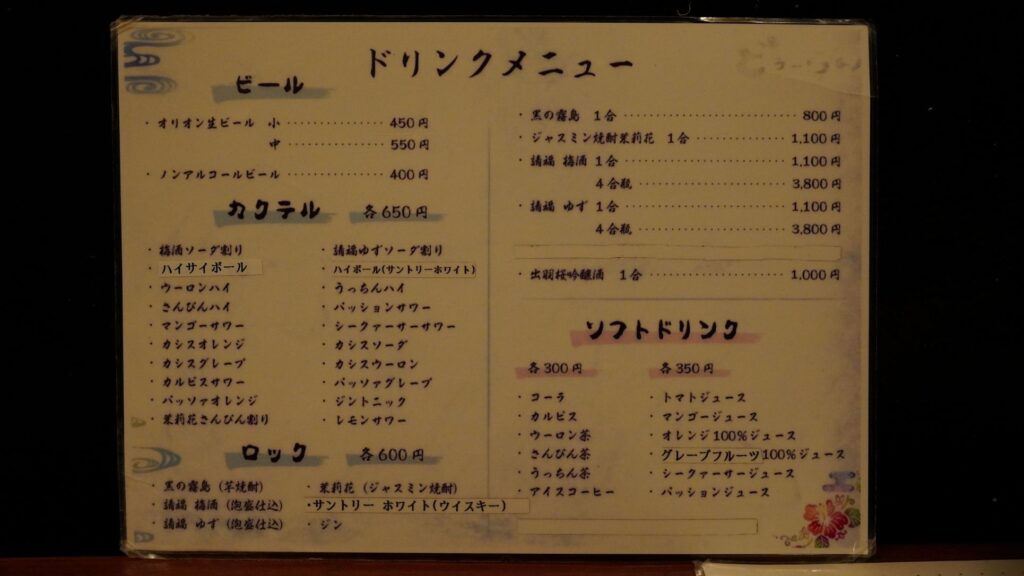 ドリンクメニュー
ビール
・オリオン生ビール 小 ・・・・・・・・・・・・・・・ 450円
中 ・・・・・・・・・・・・・・・ 550円
・ノンアルコールビール ・・・・・・・・・・・・・・・ 400円
カクテル 各650円
・梅酒ソーダ割り ・請福ゆずソーダ割り
・ハイサイボール ・ハイボール(サントリーホワイト)
・ウーロンハイ ・うっちんハイ
・さんぴんハイ ・パッションサワー
・マンゴーサワー ・シークァーサーサワー
・カシスオレンジ ・カシスソーダ
・カシスグレープ ・カシスウーロン
・カルピスサワー ・パッソァグレープ
・パッソァオレンジ ・ジントニック
・茉莉花さんぴん割り ・レモンサワー
ロック 各600円
・黒の霧島（芋焼酎） ・茉莉花（ジャスミン焼酎）
・請福 梅酒（泡盛仕込） ・サントリー ホワイト(ウイスキー)
・請福 ゆず（泡盛仕込） ・ジン
・黒の霧島 1合 ・・・・・・・・・・・・・・・ 800円
・ジャスミン焼酎茉莉花 1合 ・・・・・・・・・・・・・・・ 1,100円
・請福 梅酒 1合 ・・・・・・・・・・・・・・・ 1,100円
4合瓶 ・・・・・・・・・・・・・・・ 3,800円
・請福 ゆず 1合 ・・・・・・・・・・・・・・・ 1,100円
4合瓶 ・・・・・・・・・・・・・・・ 3,800円
・出羽桜吟醸酒 1合 ・・・・・・・・・・・・・・・ 1,000円
ソフトドリンク
各300円 各350円
・コーラ ・トマトジュース
・カルピス ・マンゴージュース
・ウーロン茶 ・オレンジ100%ジュース
・さんぴん茶 ・グレープフルーツ100%ジュース
・うっちん茶 ・シークァーサージュース
・アイスコーヒー ・パッションジュース